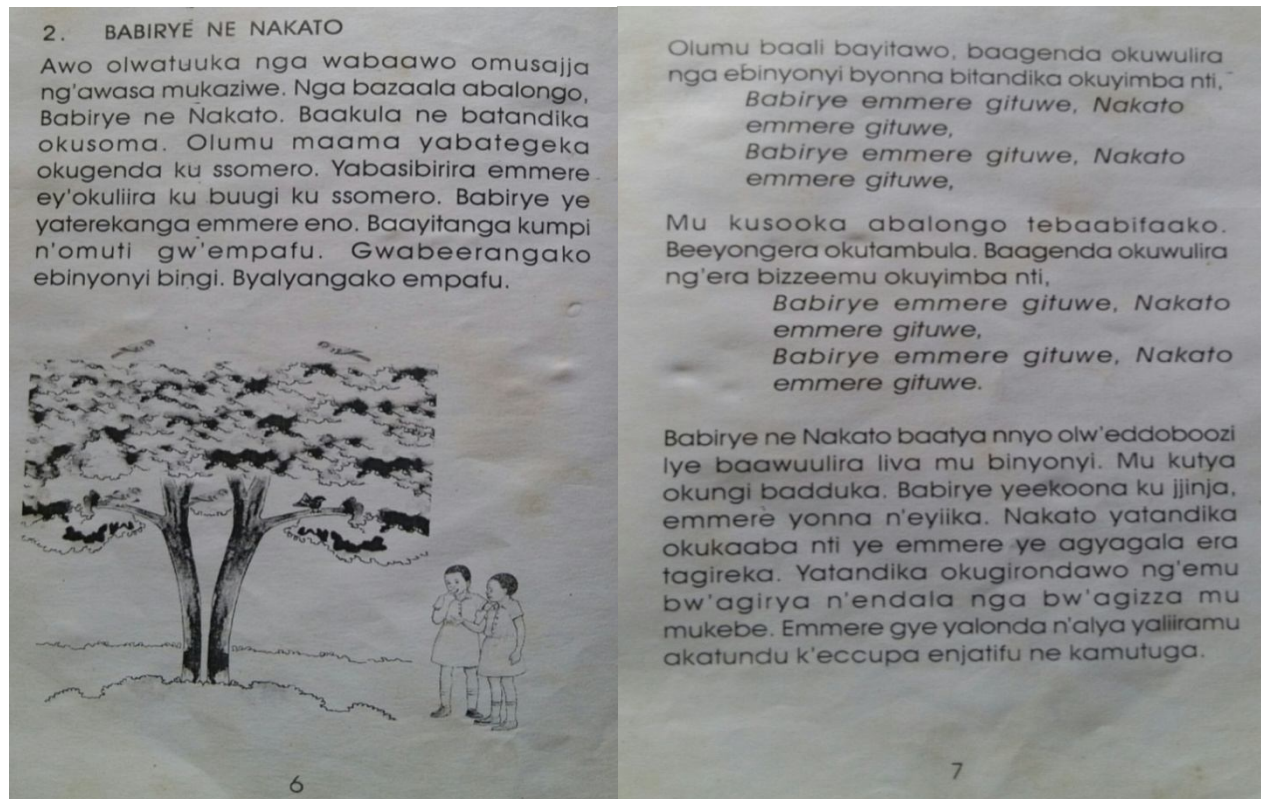 2. BABIRYE NE NAKATO
Awo olwatuuka nga wabaawo omusajja
ng'awasa mukaziwe. Nga bazaala abalongo,
Babirye ne Nakato. Baakula ne batandika
okusoma. Olumu maama yabategeka
okugenda ku ssomero. Yabasibirira emmere
ey'okuliira ku buugi ku ssomero. Babirye ye
yaterekanga emmere eno. Baayitanga kumpi
n'omuti gw'empafu. Gwabeerangako
ebinyonyi bingi. Byalyangako empafu.
6
Olumu baali bayitawo, baagenda okuwulira
nga ebinyonyi byonna bitandika okuyimba nti,
Babirye emmere gituwe, Nakato
emmere gituwe,
Babirye emmere gituwe, Nakato
emmere gituwe,
Mu kusooka abalongo tebaabifaako.
Beeyongera okutambula. Baagenda okuwulira
ng'era bizzeemu okuyimba nti,
Babirye emmere gituwe, Nakato
emmere gituwe,
Babirye emmere gituwe, Nakato
emmere gituwe.
Babirye ne Nakato baatya nnyo olw'eddoboozi
lye baawuulira liva mu binyonyi. Mu kutya
okungi badduka. Babirye yeekoona ku jjinja,
emmere yonna n'eyiika. Nakato yatandika
okukaaba nti ye emmere ye agyagala era
tagireka. Yatandika okugirondawo ng'emu
bw'agirya n'endala nga bw'agizza mu
mukebe. Emmere gye yalonda n'alya yaliiramu
akatundu k'eccupa enjatifu ne kamutuga.
7